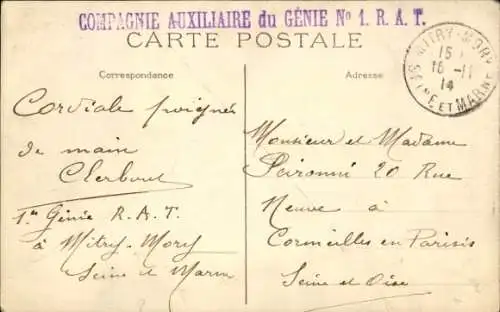 COMPAGNIE AUXILIAIRE du GÉNIE No 1. R. A. T.
CARTE POSTALE
Correspondance
Cordiale poignée
de main
Clerbout
1er Génie R. A. T.
à Mitry-Mory
Seine et Marne
Adresse
MITRY-MORY
15
16 -11
14
SEINE ET MARNE
Monsieur et Madame
20 Rue
Neuve à
Cormeilles en Parisis
Seine et Oise